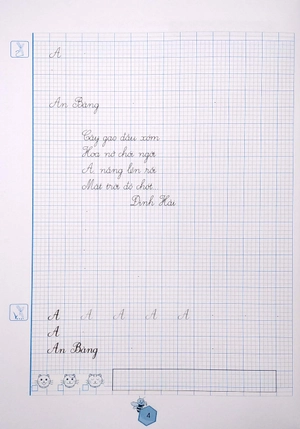 A
An Bang
Cây gạo đầu xóm
Hoa nở chói ngời
A, nắng lên rồi
Mặt trời đỏ chót
Định Hải
A A A A A
A
An Bang
4